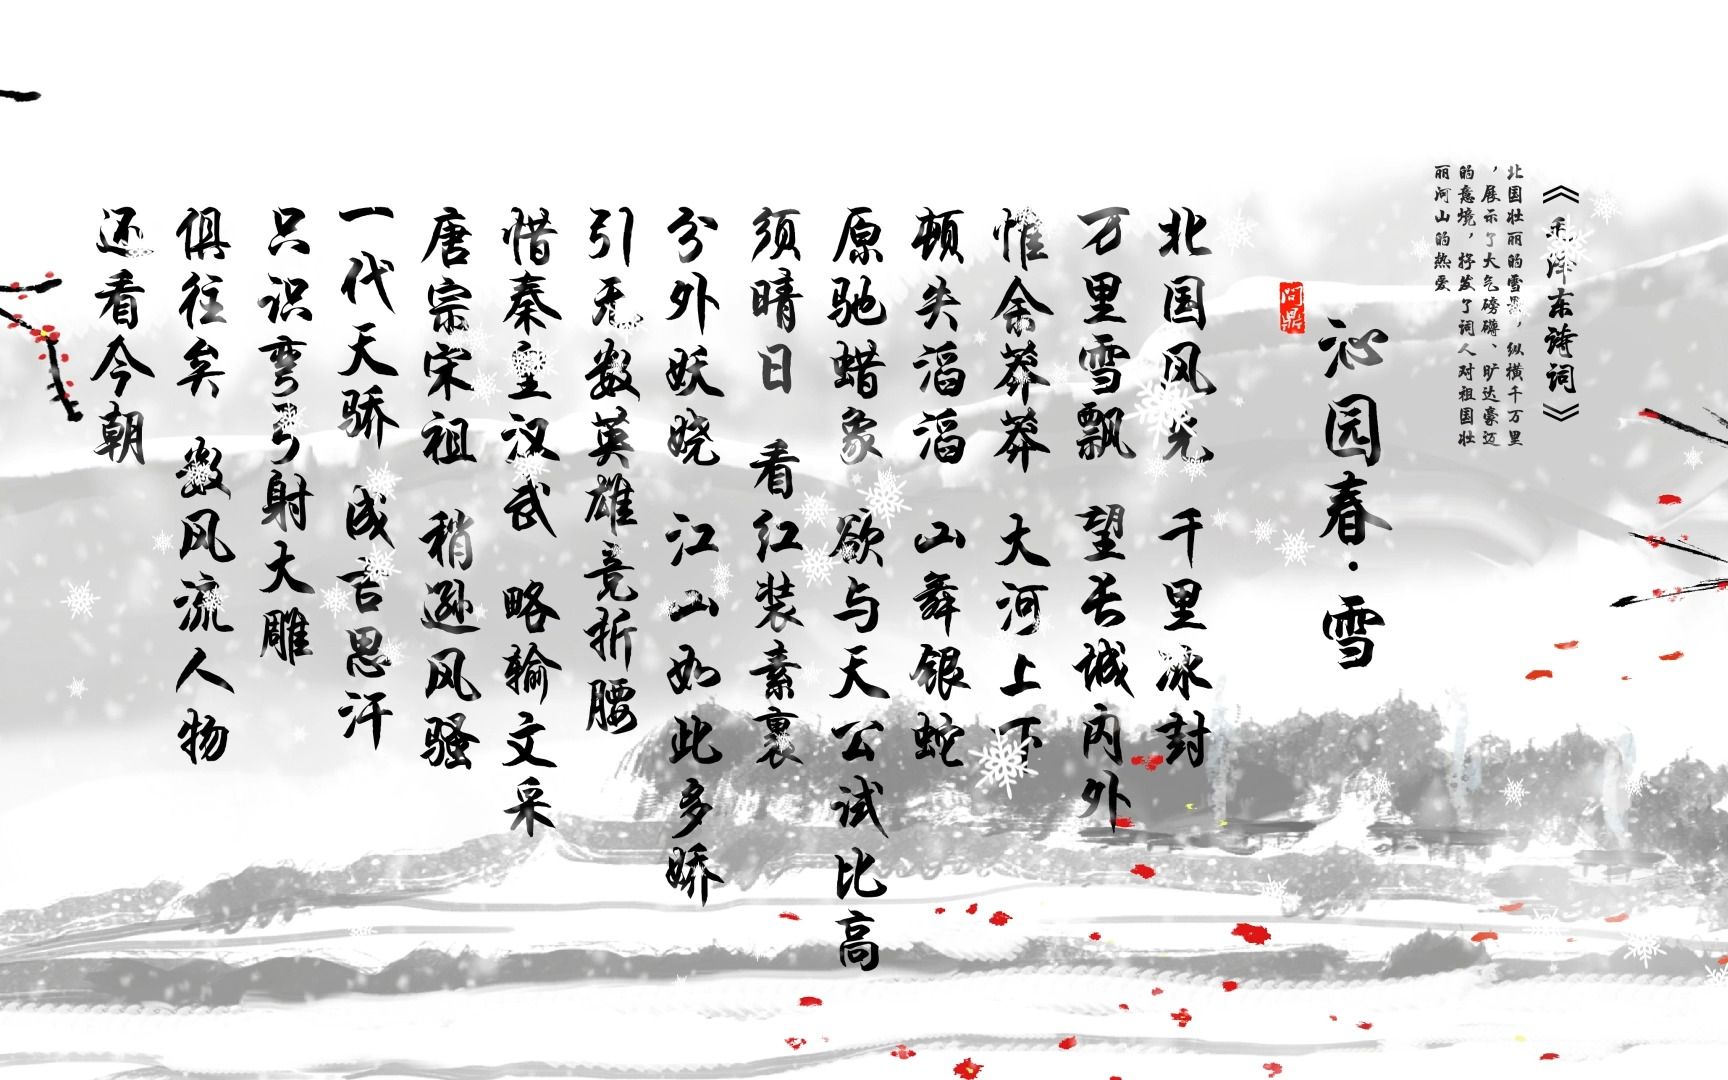 《毛泽东诗词》
北国壮丽的雪景，纵横千万里
，展示了大气磅礴、旷达豪迈
的意境，抒发了词人对祖国壮
丽河山的热爱
沁园春·雪
问鼎
北国风光 千里冰封
万里雪飘 望长城内外
惟余莽莽 大河上下
顿失滔滔 山舞银蛇
原驰蜡象 欲与天公试比高
须晴日 看红装素裹
分外妖娆 江山如此多娇
引无数英雄竞折腰
惜秦皇汉武 略输文采
唐宗宋祖 稍逊风骚
一代天骄 成吉思汗
只识弯弓射大雕
俱往矣 数风流人物
还看今朝